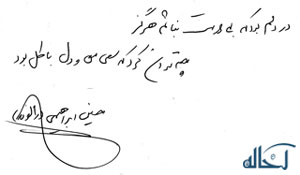 در دلم بود که بی دوست نباشم هرگز
چه توان کرد که سعی من و دل باطل بود
حسین ابراهیمی